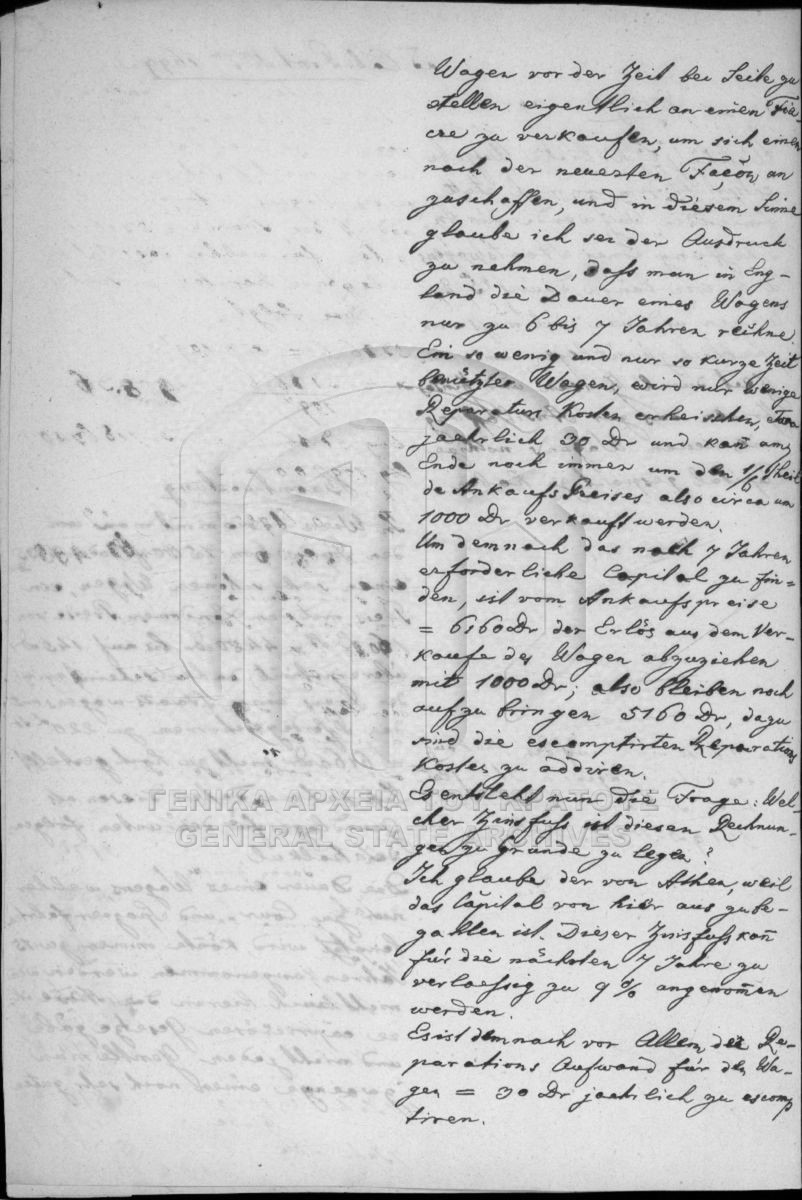 Wagen vor der Zeit bei Seite zu
stellen eigentlich an einen Fia-
cre zu verkaufen, um sich einen
nach der neuesten Façon an
zuschaffen, und in diesem Sinne
glaube ich sei der Ausdruck
zu nehmen, dass man in Eng-
land die Dauer eines Wagens
nur zu 6 bis 7 Jahren rechne.
Ein so wenig und nur so kurze Zeit
benützter Wagen, wird nur wenige
Reparaturs Kosten erheischen, etwa
jaehrlich 30 Dr und kan̄ am
Ende noch immer um den 1/6 Theil
de Ankaufs Preises also circa um
1000 Dr verkauft werden.
Um demnach das nach 7 Jahren
erforderliche Capital zu fin=
den, ist vom Ankaufspreise
= 6160 Dr der Erlös aus dem Ver-
kaufe des Wagen abzuziehen
mit 1000 Dr; also bleiben noch
aufzubringen 5160 Dr, dazu
sind die escomptirten Reparations
Kosten zu addiren.
Es entsteht nun die Frage: Wel-
cher Zinsfuss ist diesen Rechnun-
gen zu Grunde zu legen?
Ich glaube der von Athen, weil
das Capital von hier aus zube-
zahlen ist. Dieser Zinsfuss kan̄
für die nächsten 7 Jahre zu
verlaessig zu 9 % angenom̄en
werden.
Es ist demnach vor Allem der Re-
parations Aufwand für den Wa-
gen = 30 Dr jaehrlich zu escomp
tiren.
ΓΕΝΙΚΑ ΑΡΧΕΙΑ ΤΟΥ ΚΡΑΤΟΥΣ
GENERAL STATE ARCHIVES